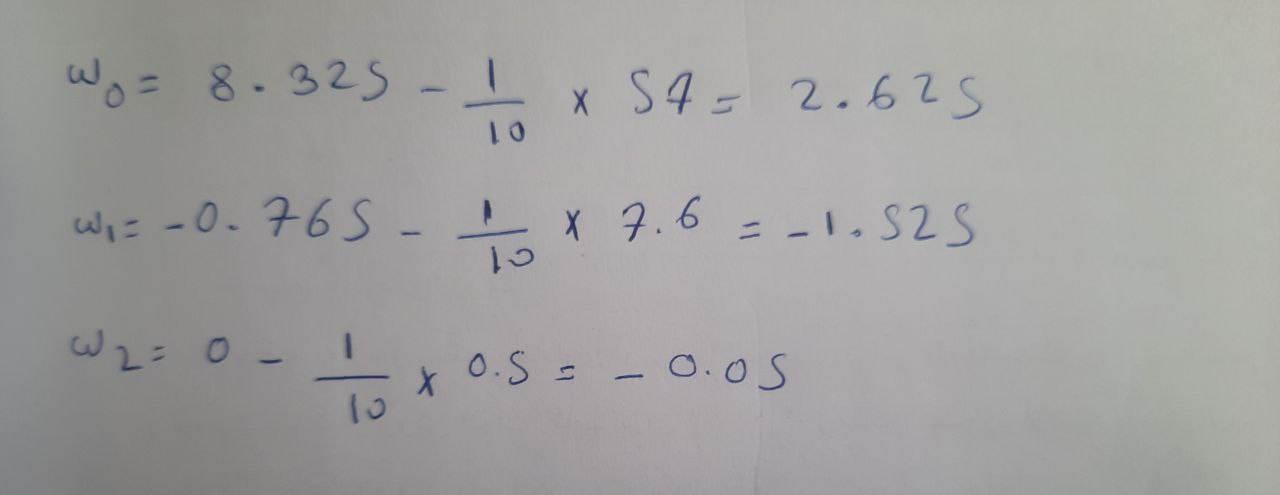 w₀ = 8.325 - 1/10 × 57 = 2.625
w₁ = -0.765 - 1/10 × 7.6 = -1.525
w₂ = 0 - 1/10 × 0.5 = -0.05